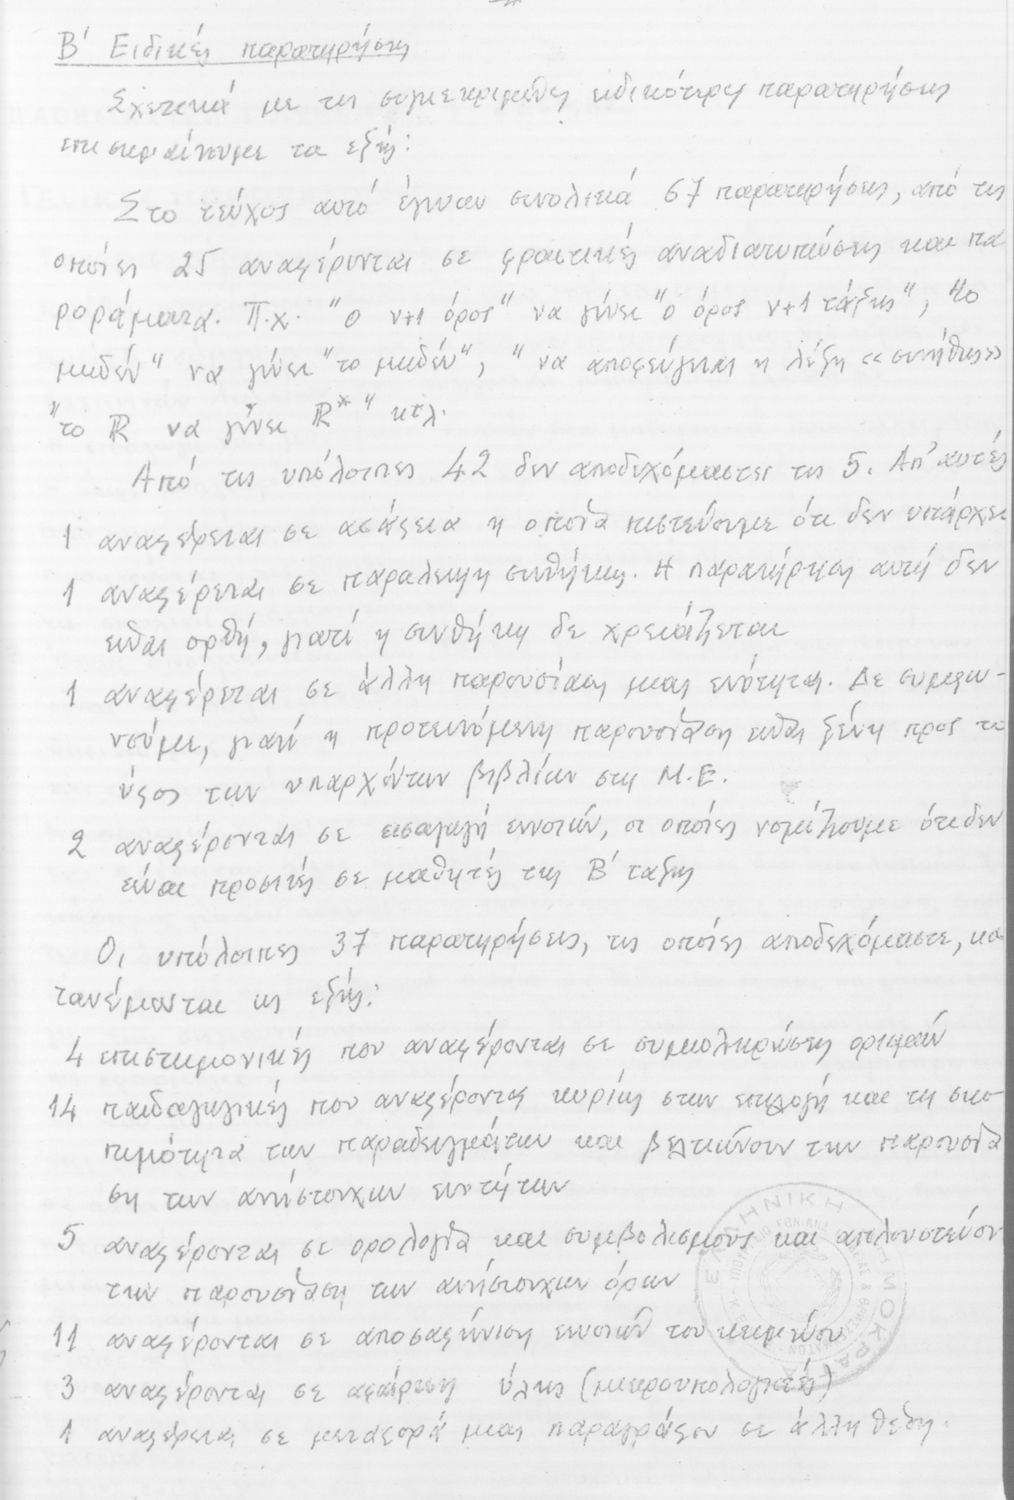 Β' Ειδικές παρατηρήσεις
Σχετικά με τις συγκεκριμένες ειδικότερες παρατηρήσεις
επισημαίνουμε τα εξής:
Στο τεύχος αυτό έγιναν συνολικά 67 παρατηρήσεις, από τις
οποίες 25 αναφέρονται σε φραστικές αναδιατυπώσεις και πα
ροράματα. Π.χ. "ο ν+1 όρος" να γίνει "ο όρος ν+1 τάξης", "το
μηδέν" να γίνει "το μηδέν", "να αποφεύγεται η λέξη «συνήθως»
"το ℝ να γίνει ℝ*" κτλ.
Από τις υπόλοιπες 42 δεν αποδεχόμαστε τις 5. Απ' αυτές
1 αναφέρεται σε ασάφεια η οποία πιστεύουμε ότι δεν υπάρχει
1 αναφέρεται σε παράλειψη συνθήκης. Η παρατήρηση αυτή δεν
είναι ορθή, γιατί η συνθήκη δε χρειάζεται
1 αναφέρεται σε άλλη παρουσίαση μιας ενότητας. Δε συμφω-
νούμε, γιατί η προτεινόμενη παρουσίαση είναι ξένη προς το
ύφος των υπαρχόντων βιβλίων στη Μ.Ε.
2 αναφέρονται σε εισαγωγή εννοιών, οι οποίες νομίζουμε ότι δεν
είναι προσιτές σε μαθητές της Β' τάξης
Οι υπόλοιπες 37 παρατηρήσεις, τις οποίες αποδεχόμαστε, κα
τανέμονται ως εξής:
4 επιστημονικές που αναφέρονται σε συμπληρώσεις ορισμών
14 παιδαγωγικές που αναφέρονται κυρίως στην επιλογή και τη σκο-
πιμότητα των παραδειγμάτων και βελτιώνουν την παρουσία
ση των αντίστοιχων ενοτήτων
5 αναφέρονται σε ορολογία και συμβολισμούς και απλουστεύουν
την παρουσίαση των αντίστοιχων όρων
11 αναφέρονται σε αποσαφήνιση εννοιών του κειμένου
3 αναφέρονται σε αφαίρεση ύλης (μικροϋπολογιστές)
1 αναφέρεται σε μεταφορά μιας παραγράφου σε άλλη θέση.
ΕΛΛΗΝΙΚΗ ΔΗΜΟΚΡΑΤΙΑ